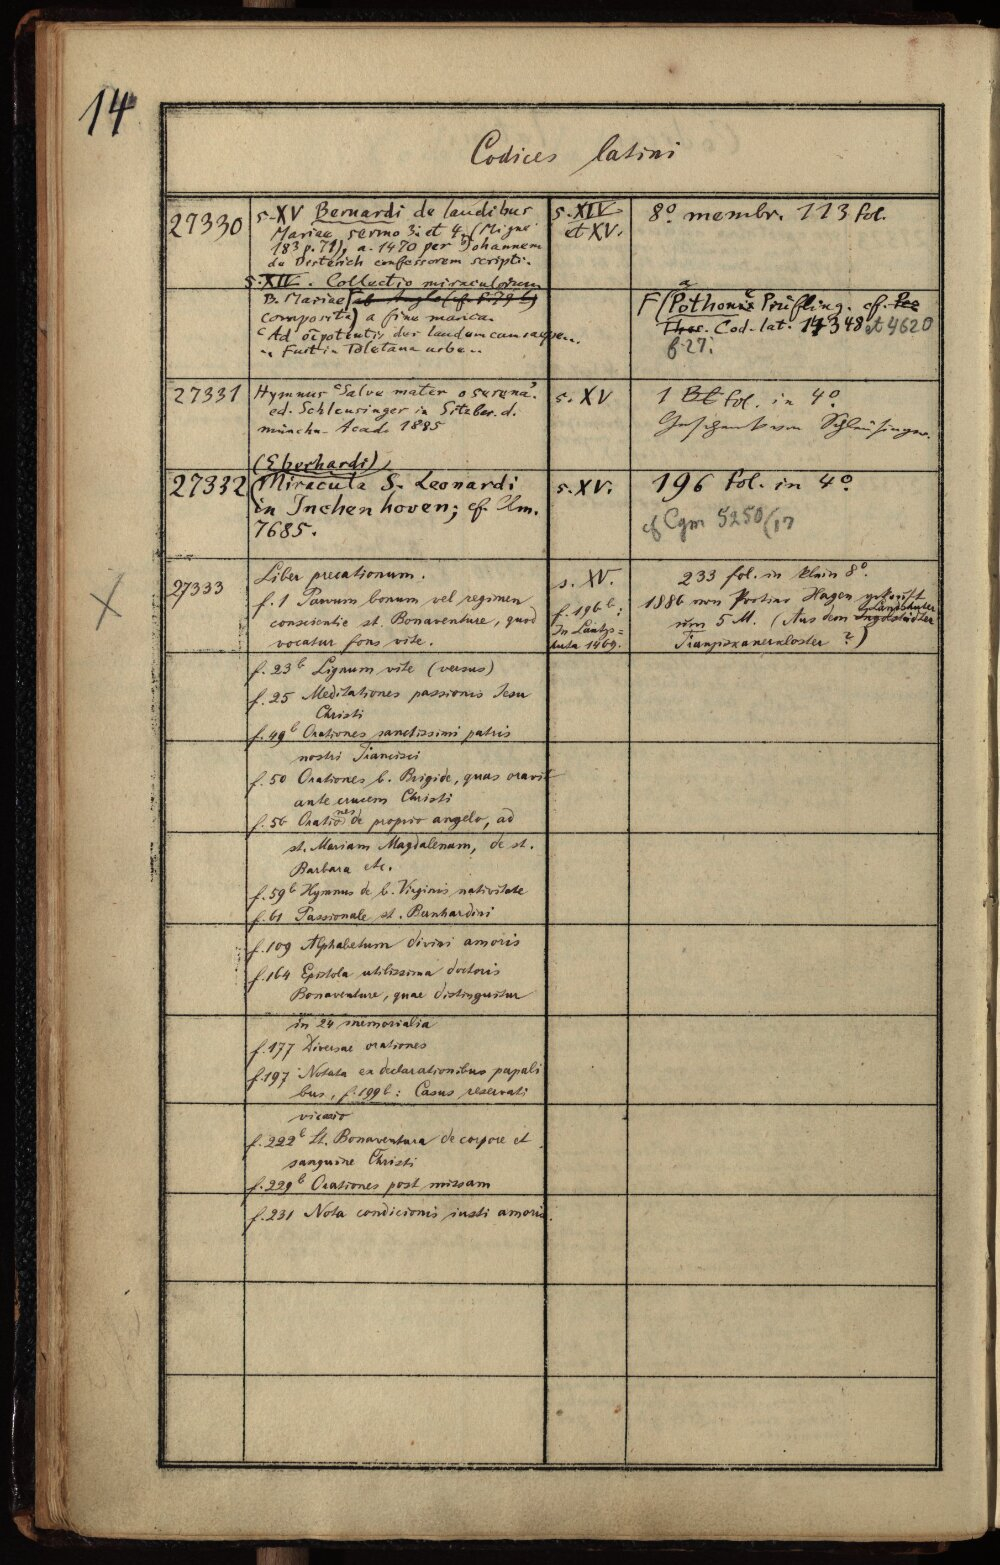 14
Codices latini
27330
s. XV Bernardi de laudibus
Mariae sermo 3. et 4. (Migne
183 p. 71), a. 1470 per Johannem
de confessorem scripti.
s. XIV. Collectio miraculorum
B. Mariae (ab Anglo (cf. f. 79 b)
composita) a fine manca.
Ad
Fuit in Toletana urbe
s. XIV
et XV.
8º membr. 113 fol.
F (Pothonis Prüfling. cf. Pez
Thes. Cod. lat. 14348 et 4620
f. 27.
27331
Hymnus "Salve mater o serena".
ed. Schleusinger in Sitzber. d.
münchn. Acad. 1885
s. XV
1 Bl fol. in 4º.
Geschenk von Schleusinger.
27332
(Eberhardi)
Miracula S. Leonardi
in Inchenhoven; cf. Clm.
7685.
s. XV.
196 fol. in 4º.
cf Cgm 5250/17
X
27333
Liber precationum.
f. 1 Parvum bonum vel regimen
conscientie st. Bonaventure, quod
vocatur fons vite.
f. 23 b Lignum vite (versus)
f. 25 Meditationes passionis Jesu
Christi
f. 49 b Orationes sanctissimi patris
nostri Francisci
f. 50 Orationes b. Brigide, quas oravit
ante crucem Christi
f. 56 Orationes de proprio angelo, ad
st. Mariam Magdalenam, de st.
Barbara etc.
f. 59 b Hymnus de b. Virginis nativitate
f. 61 Passionale st. Bernhardini
f. 109 Alphabetum divini amoris
f. 164 Epistola utilissima doctoris
Bonaventure, quae distinguitur
in 24 memorialia
f. 177 Diversae orationes
f. 197 Notata ex declarationibus papali
bus, f. 199 b: Casus reservati
vicario
f. 222 b St. Bonaventura de corpore et
sanguine Christi
f. 229 b Orationes post missam
f. 231 Nota condicionis iusti amoris.
s. XV.
f. 196 b:
In Lantz=
huta 1469.
233 fol. in klein 8º.
1886 von Hagen gekauft
um 5 M. (Aus dem Ingolstädter
Landshuter
Franziskanerkloster ?)